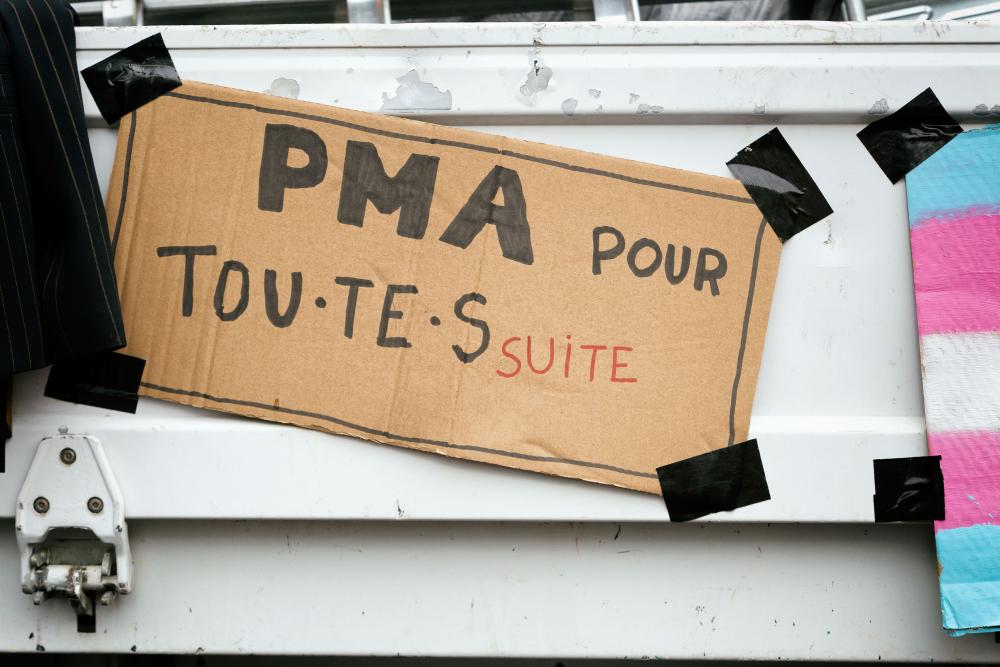 PMA POUR
TOU·TE·S SUITE